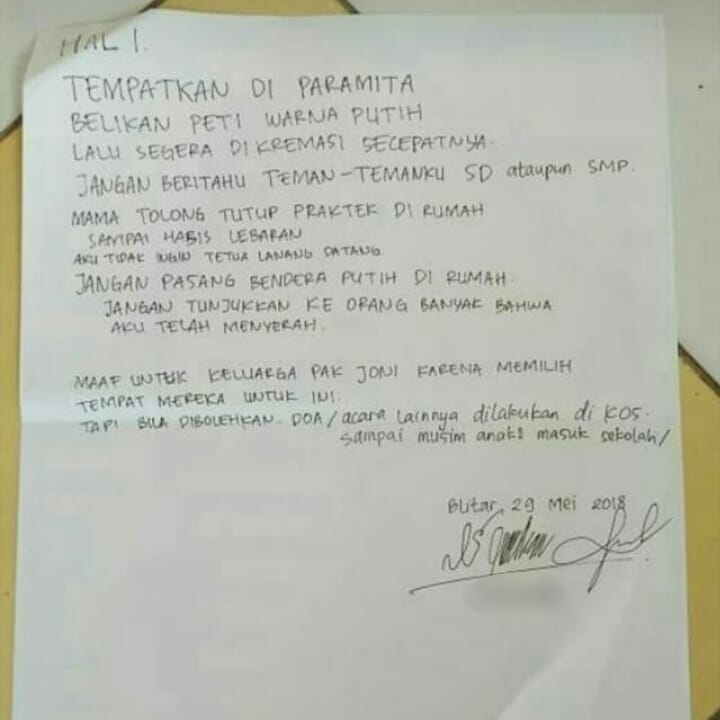 HAL 1.
TEMPATKAN DI PARAMITA
BELIKAN PETI WARNA PUTIH
LALU SEGERA DI KREMASI SECEPATNYA.
JANGAN BERITAHU TEMAN-TEMANKU SD ataupun SMP.
MAMA TOLONG TUTUP PRAKTEK DI RUMAH
SAMPAI HABIS LEBARAN
AKU TIDAK INGIN TETUA LANANG DATANG
JANGAN PASANG BENDERA PUTIH DI RUMAH.
JANGAN TUNJUKKAN KE ORANG BANYAK BAHWA
AKU TELAH MENYERAH.
MAAF UNTUK KELUARGA PAK JONI KARENA MEMILIH
TEMPAT MEREKA UNTUK INI.
TAPI BILA DIBOLEHKAN. DOA/acara lainnya dilakukan di kos.
sampai musim anak² masuk sekolah/
Blitar, 29 Mei 2018